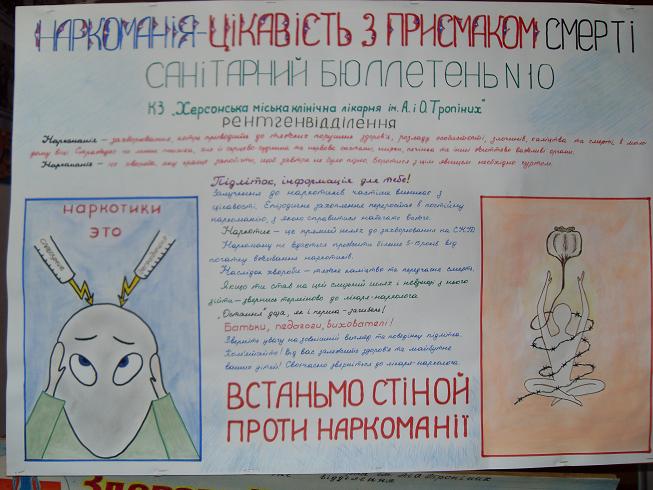 НАРКОМАНІЯ-ЦІКАВІСТЬ З ПРИСМАКОМ СМЕРТІ
САНІТАРНИЙ БЮЛЛЕТЕНЬ N10
КЗ „Херсонська міська клінічна лікарня ім. А. і О. Тропіних"
РЕНТГЕНВІДДІЛЕННЯ
Наркоманія - захворювання, котре приводить до тяжких порушень здоров'я, розладу особистості, злочинів, каліцтва та смерті в мо
Наркоманія - це хвороба, яку краще запобігти, щоб завтра не було пізно. Боротися з цим явищем необхідно гуртом.
Підліток, інформація для тебе!
Залучення до наркотиків частіш виникає з
цікавості. Епізодичне захоплення переростає в постійну
наркоманію, з якою справитися набагато важче.
Наркотик - це прямий шлях до захворювання на СНІД
Наркоману не вдається прожити більше 5-10 років від
початку вживання наркотиків.
Наслідок хвороби - тяжке каліцтво та передчасна смерть.
Якщо ти став на цей слизький шлях і невдусі з нього
зійти - звернись терміново до лікаря-нарколога
„Остання доза, як і перша - загибель!
Батьки, педагоги, вихователі!
Зверніть увагу на зовнішній вигляд та поведінку підлітка.
Пам'ятайте! від вас залежить здоров'я та майбутнє
ваших дітей! Своєчасно зверніться до лікаря-нарколога.
ВСТАНЬМО СТІНОЙ
ПРОТИ НАРКОМАНІЇ
наркотики
это